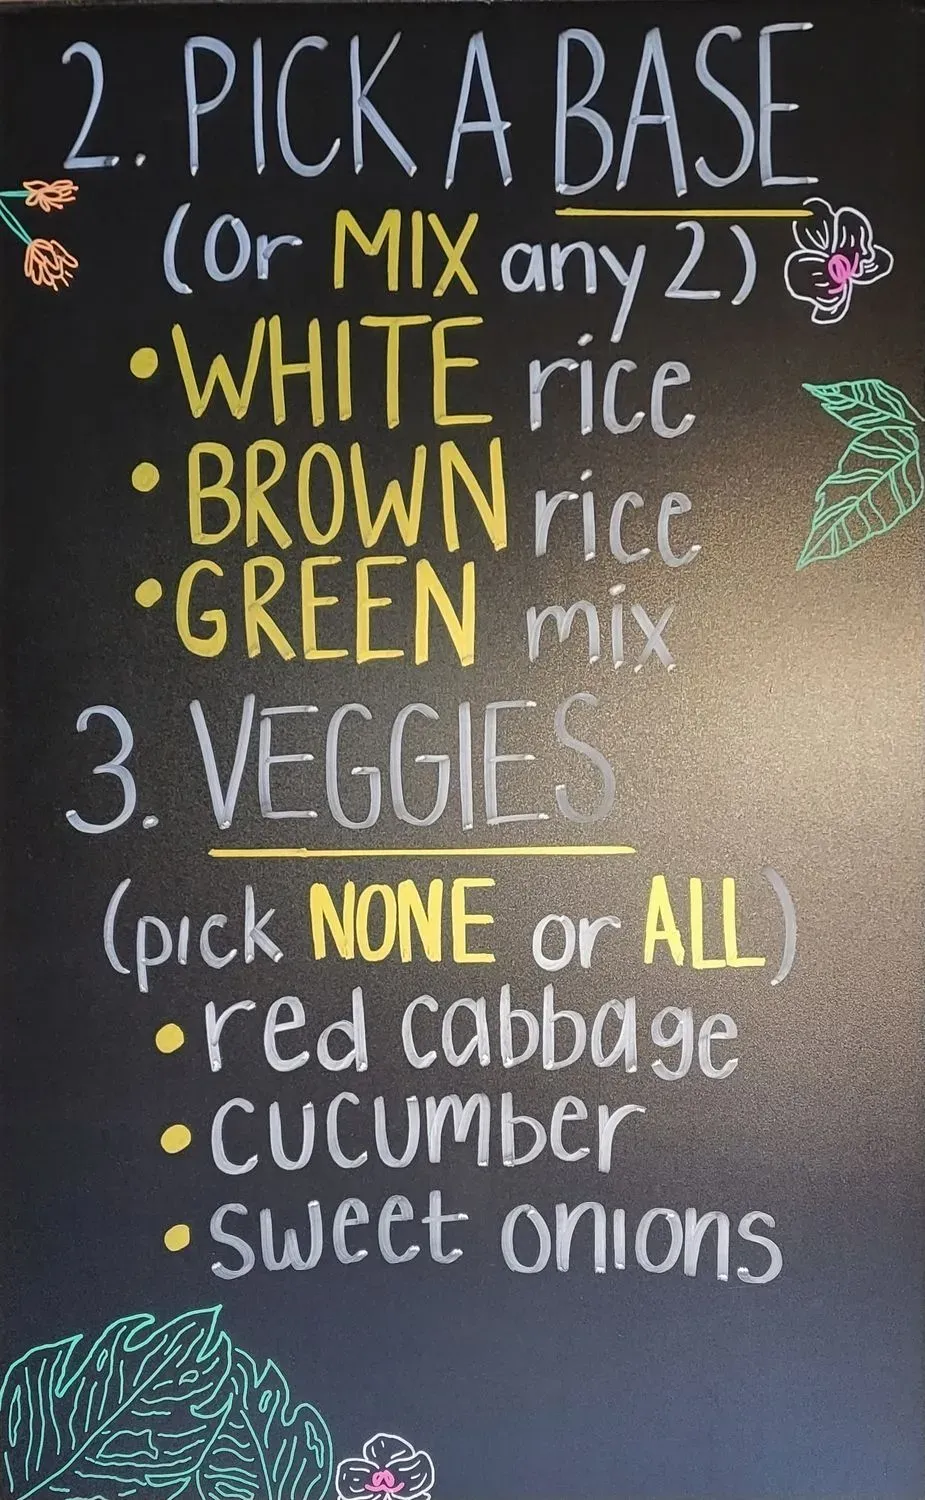 2. PICK A BASE
(Or MIX any 2)
• WHITE rice
• BROWN rice
• GREEN mix
3. VEGGIES
(pick NONE or ALL)
• red cabbage
• cucumber
• sweet onions